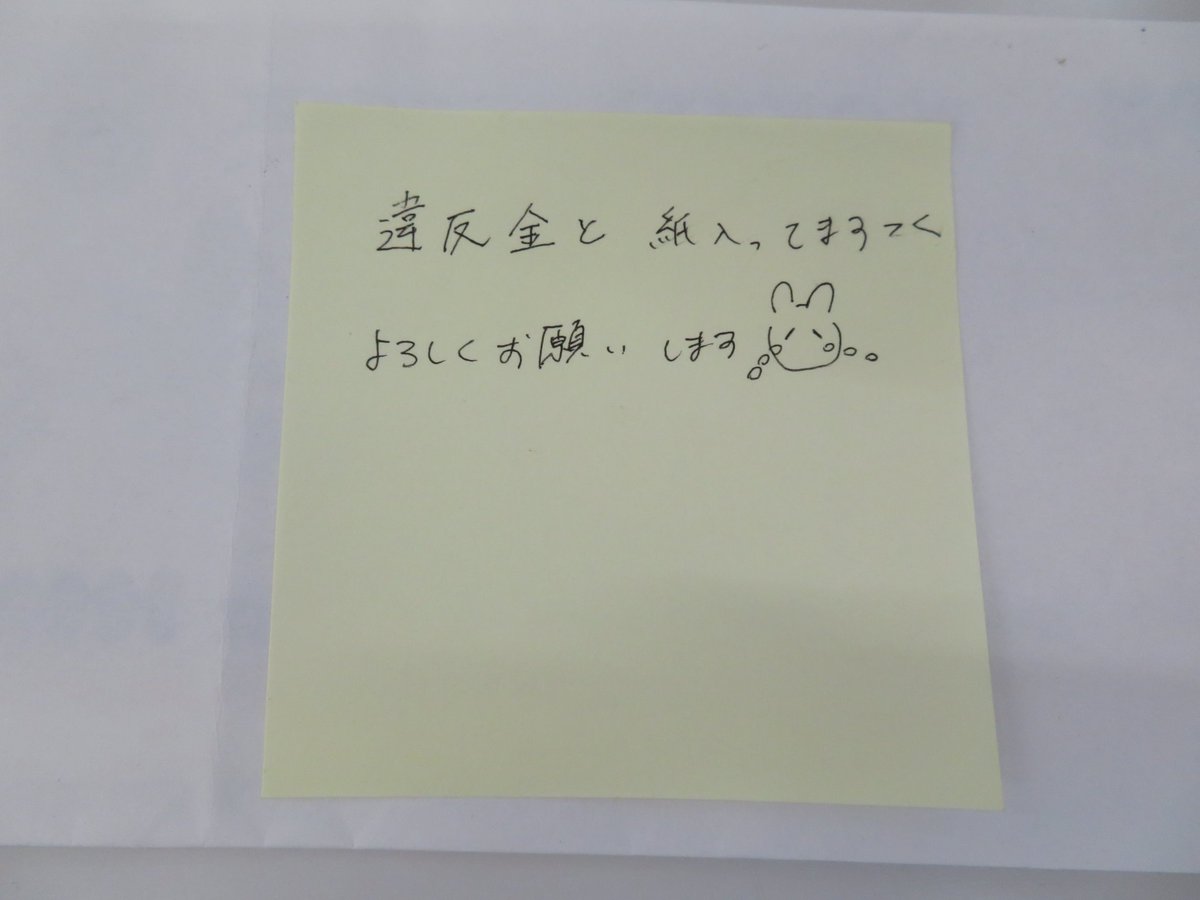 違反金と 紙入ってますてく
よろしくお願いします